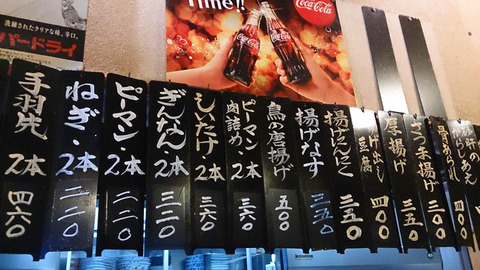 洗練されたクリアな味、辛口。
パードライ
Time!!
Coca-Cola
Coca-Cola
Coca-Cola
手羽先 2本 四六〇
ねぎ・2本 二二〇
ピーマン・2本 二二〇
ぎんなん 2本 三二〇
しいたけ・2本 三六〇
ピーマン肉詰め・2本 三六〇
鳥の唐揚げ 五〇〇
揚げなす 三五〇
揚げにんにく 三五〇
揚げ出し豆腐 四〇〇
厚揚げ 四〇〇
さつま揚げ 三五〇